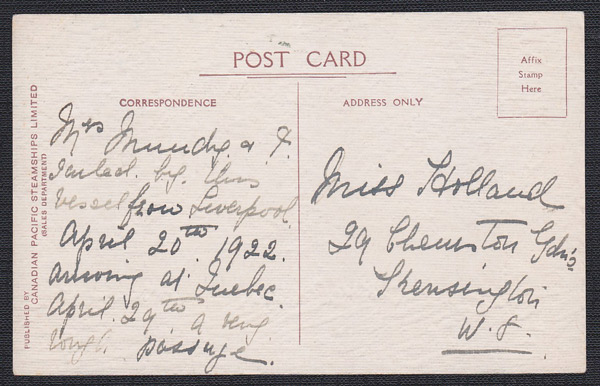 POST CARD
Affix
Stamp
Here
CORRESPONDENCE
ADDRESS ONLY
PUBLISHED BY CANADIAN PACIFIC STEAMSHIPS LIMITED
(SALES DEPARTMENT)
Mrs Mundy & I.
by this
vessel from Liverpool.
April 20th 1922.
arriving at Quebec.
April 29th a very
rough passage.
Miss Holland
29 Gdns
Kensington
W. 8.